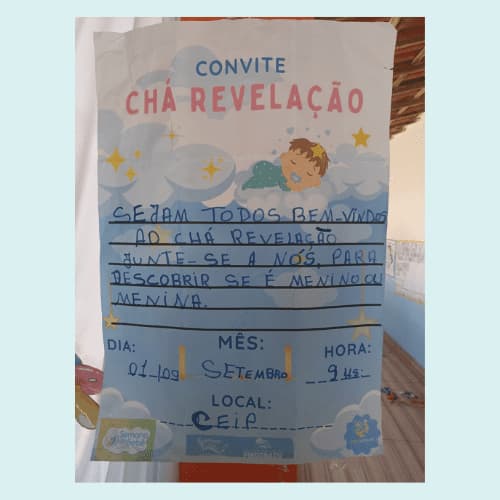 CONVITE
CHÁ REVELAÇÃO
SEJAM TODOS BEM-VINDOS
AO CHÁ REVELAÇÃO
JUNTE-SE A NÓS, PARA
DESCOBRIR SE É MENINO OU
MENINA.
DIA: MÊS: HORA:
01/09 SETEMBRO 9 HS
LOCAL:
CEIP
Simone